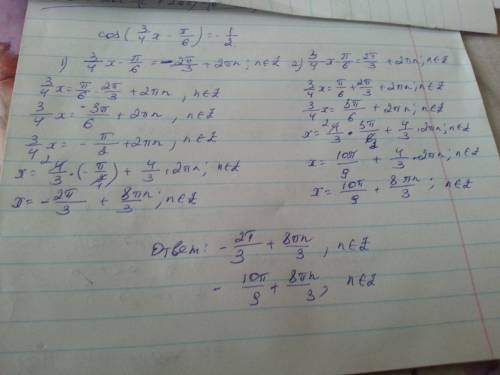 cos(3/4 x - π/6) = -1/2
1) 3/4 x - π/6 = -2π/3 + 2πn; n∈Z
3/4 x = π/6 - 2π/3 + 2πn, n∈Z
3/4 x = -3π/6 + 2πn, n∈Z
3/4 x = -π/2 + 2πn, n∈Z
x = 4/3 · (-π/2) + 4/3 · 2πn; n∈Z
x = -2π/3 + 8πn/3; n∈Z
2) 3/4 x π/6 = 2π/3 + 2πn; n∈Z
3/4 x = π/6 + 2π/3 + 2πn; n∈Z
3/4 x = 5π/6 + 2πn; n∈Z
x = 4/3 · 5π/6 + 4/3 · 2πn; n∈Z
x = 10π/9 + 4/3 · 2πn; n∈Z
x = 10π/9 + 8πn/3; n∈Z
Ответ: -2π/3 + 8πn/3, n∈Z
- 10π/9 + 8πn/3, n∈Z